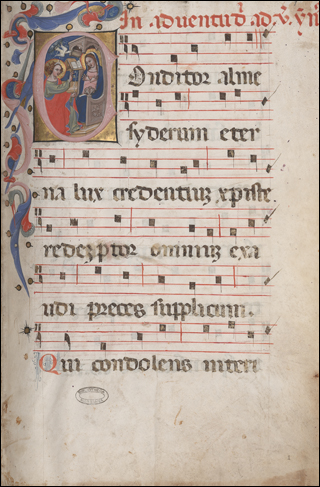 In aduentu d̄. ad. v̄. ym̄
Conditor alme
syderum eter
na lux credentiuʒ xp̄iste.
redemptor omniuʒ exa
udi preces supplicum.
Qui condolens interi